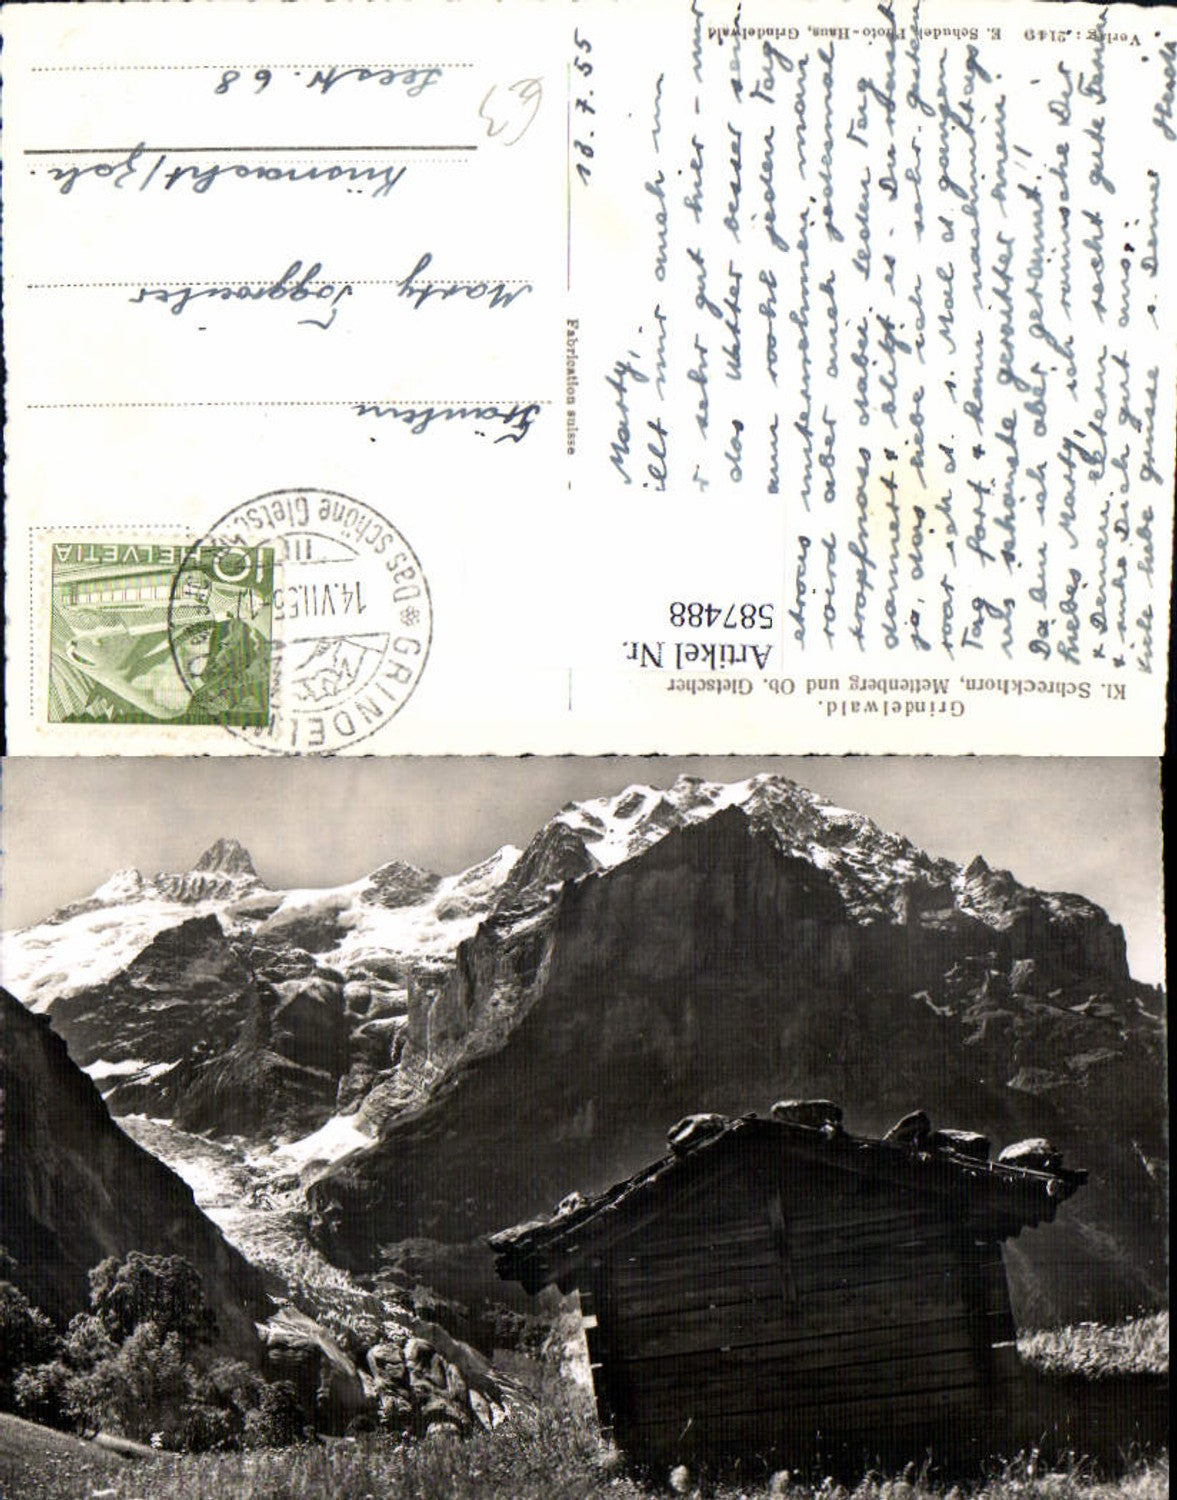 Grindelwald.
Kl. Schreckhorn, Mettenberg und Ob. Gletscher
Artikel Nr.
587488
HELVETIA
10
GRINDELWALD
Das schöne Gletsch
14.VII.55
III
Fräulein
Marty Toggweiler
Küsnacht/Zch.
Seestr. 68
63
Fabrication suisse
18.7.55
Marty,
illt mir auch im
r sehr gut hier – nur
das Wetter besser sein
ann wohl jeden Tag
etwas unternehmen, man
wird aber auch jedesmal
tropfnass dabei. Jeden Tag
donnert & blitzt es – Du weisst
ja, das liebe ich sehr. Gestern
war ich d. s. Mal d. ganzen
Tag fort & kam nachmittags
ins schönste Gewitter hinein.
Da bin ich aber gerannt!!
Liebes Marty, ich wünsche Dir
& Deinen Eltern recht gute Ferien
& ruhe Dich gut aus.
Viele liebe Grüsse v. Deiner
Verlag: 2149 E. Schudel, Photo-Haus, Grindelwald